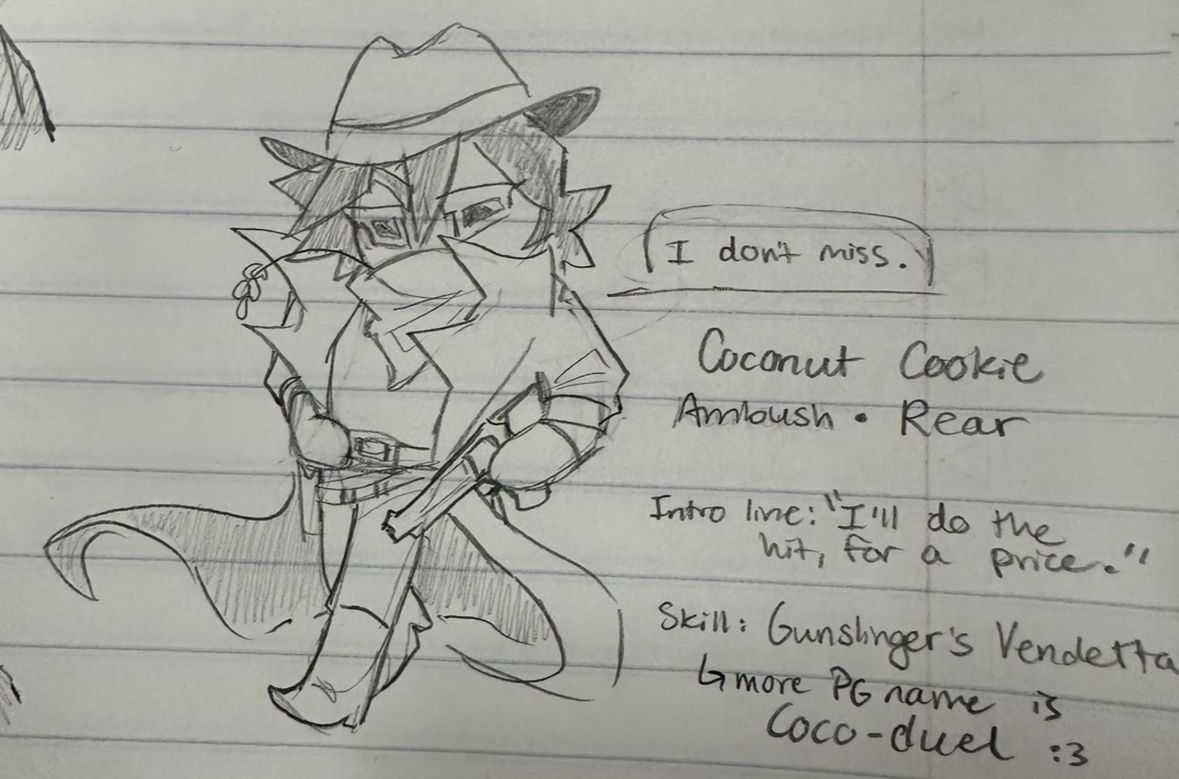 I don't miss.
Coconut Cookie
Ambush • Rear
Intro line: "I'll do the
hit, for a price."
Skill: Gunslinger's Vendetta
↳ more PG name is
Coco-duel :3